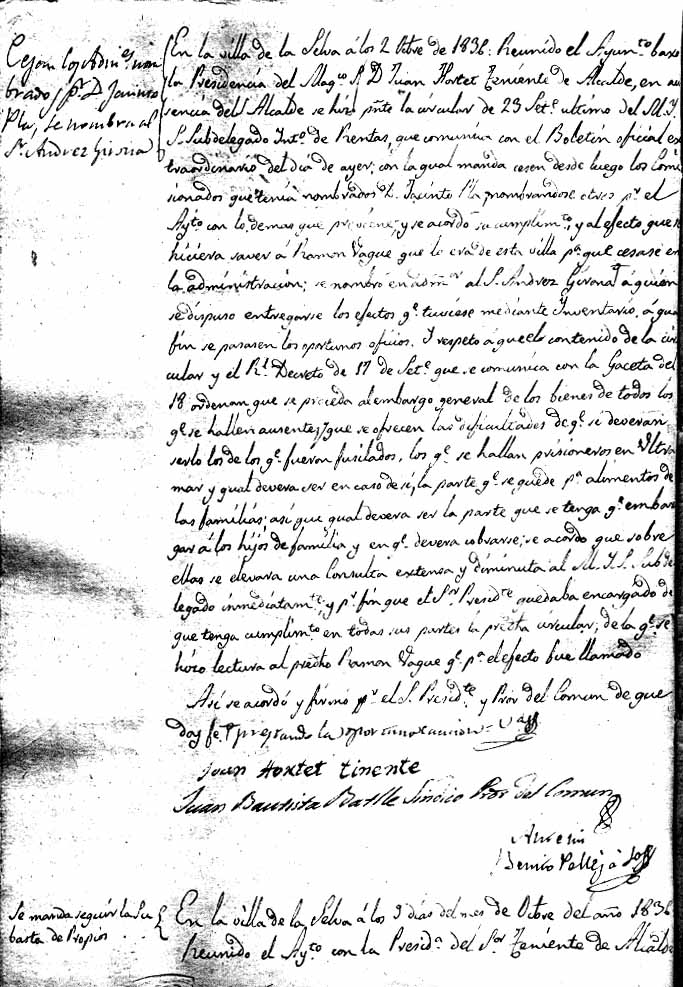 Cesan los Adm.es nom
brados p.r D. Jacinto
Pla, se nombra al
S.r Andrez Girona
En la villa de la Selva á los 2 Octre de 1836: Reunido el Ayun.to baxo
la Presidencia del Mag.co S. D. Juan Hortet Teniente de Alcalde, en au
sencia del S. Alcalde se hizo pñte la circular de 23 Set.e ultimo del M. Y.
S. Subdelegado Int.o de Rentas, que comunica con el Boletin oficial ex
traordinario del dia de ayer; con la qual manda cesen desde luego los Comi
sionados que tenia nombrados D. Jacinto Pla, nombrandose otros p.r el
Ay.to con lo demas que previene, y se acordó su cumplim.to, y al efecto que se
hiciera saver á Ramon Vague que lo era de esta villa p.a que cesase en
la administracion; se nombró en adm.or al S. Andrez Girona, á quien
se dispuso entregarse los efectos q.e tuviese mediante Ynventario, á que
fin se pasasen los oportunos oficios. Y respeto á que el contenido de la cir
cular y el R.l Decreto de 17 de Set.e que se comunica con la Gaceta del
18 ordenan que se proceda al embargo general de los bienes de todos los
q.e se hallen ausentes, y que se ofrecen las dificultades de q.e si deveran
serlo los de los q.e fueron fusilados, los q.e se hallan prisioneros en Ultra
mar y qual devera ser en caso de si, la parte q.e se quede p.a alimentos de
las familias; asi que qual devera ser la parte que se tenga q.e embar
gar á los hijos de familia y en q.e devera cobrarse; se acordo que sobre
ellas se elevara una Consulta extensa y diminuta al M. Y. S. Subde
legado inmediatam.te, y p.r fin que el S.or Presid.te quedaba encargado de
que tenga cumplim.to en todas sus partes la precitada circular; de la q.e se
hizo lectura al precho Ramon Vague q.e p.a el efecto fue llamado
Asi se acordó y firmó p.r el S. Presid.te y Pror del Comun de que
doy fe
Joan Hortet tinente
Juan Bautista Batlle Sindico Pror del Comun
Ante mi
Benito Pellejá
Se manda seguir la Su
basta de Propios
En la villa de la Selva á los 9 dias del mes de Octbre del año 1836
Reunido el Ay.to con la Presid.a del S.or Teniente de Alcalde